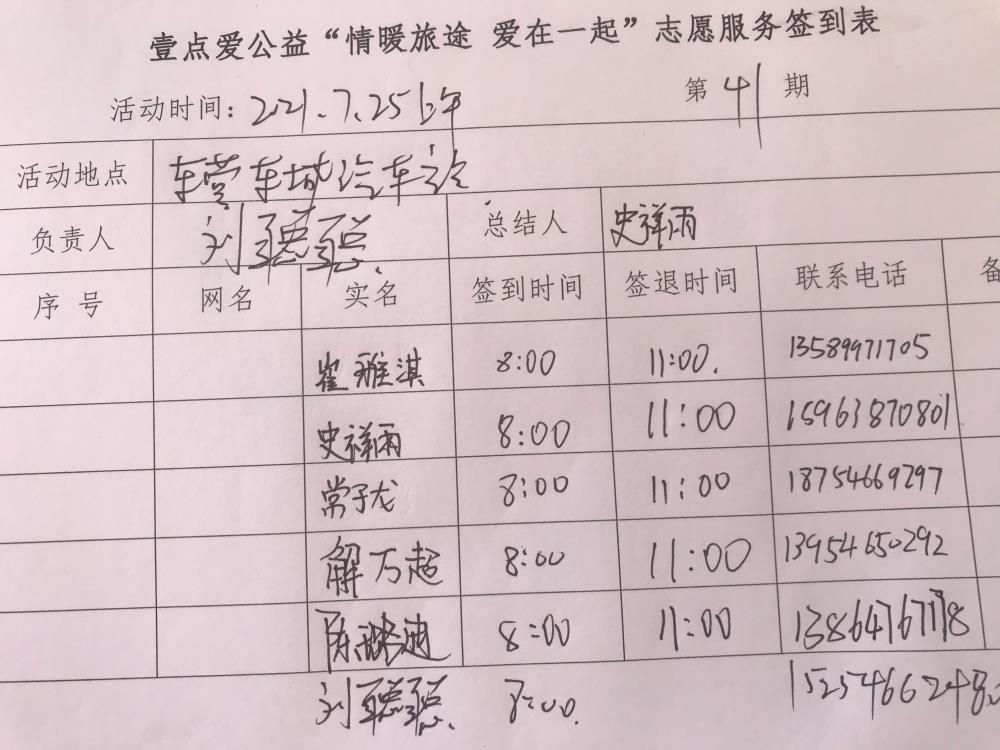 壹点爱公益“情暖旅途 爱在一起”志愿服务签到表
活动时间：2021.7.25上午 第41期
活动地点 东营东城汽车站
负责人 刘聪聪 总结人 史祥雨
序号 网名 实名 签到时间 签退时间 联系电话 备
崔雅淇 8:00 11:00. 13589971705
史祥雨 8:00 11:00 15963870801
常子龙 8:00 11:00 18754669297
解万超 8:00 11:00 13954650292
陈 8:00 11:00
刘聪聪. 8:00.